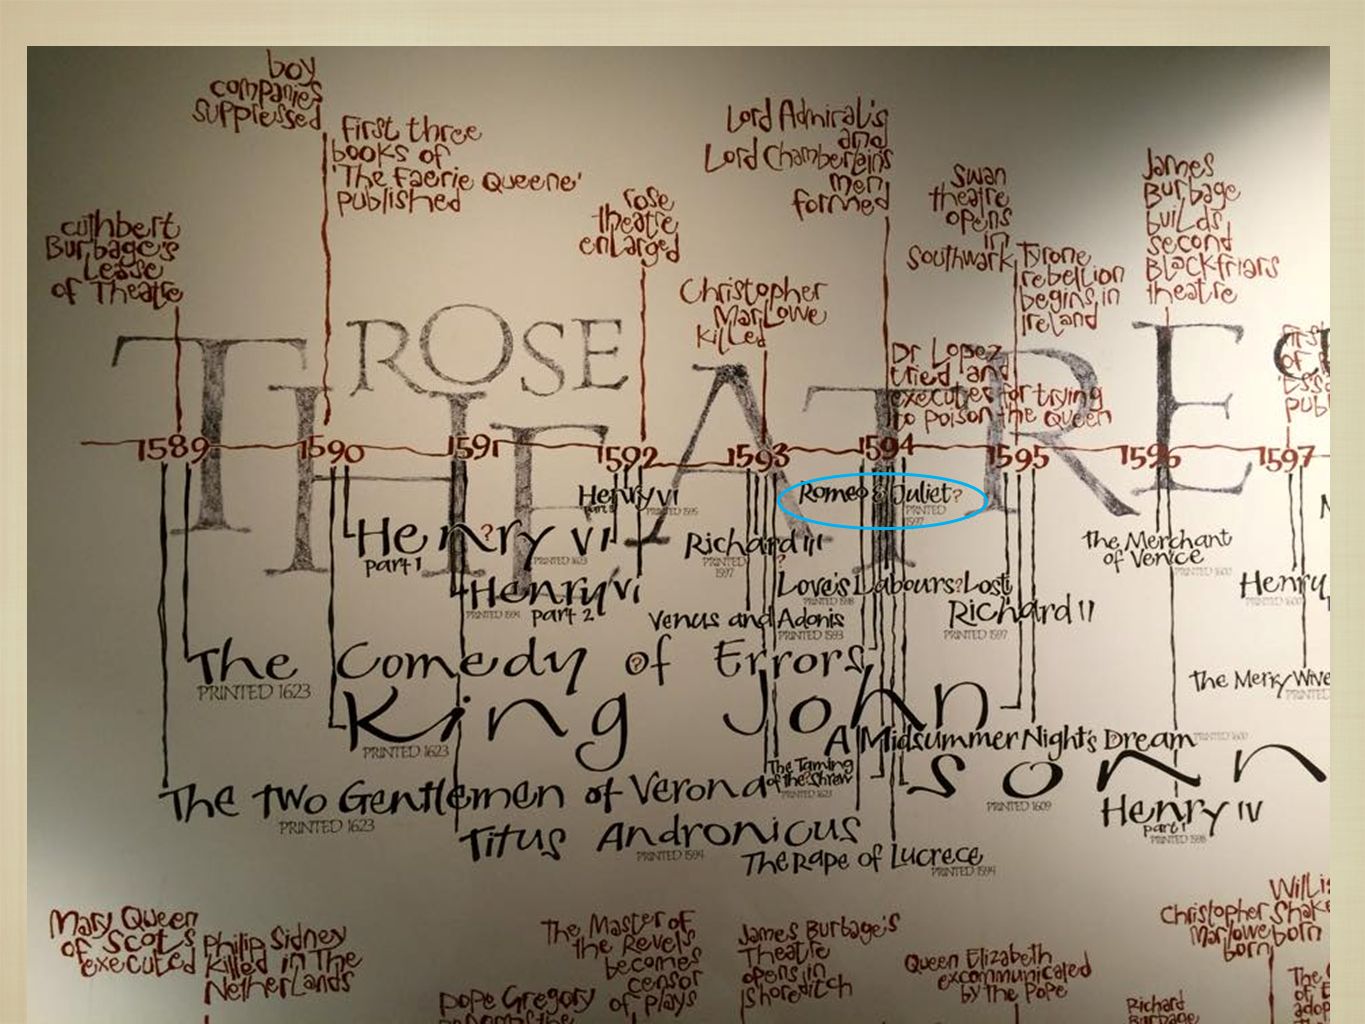 boy
companies
suppressed
First three
books of
'The Faerie Queene'
published
cuthbert
Burbage's
Lease
of Theatre
rose
theatre
enlarged
Christopher
Marlowe
killed
Lord Admiral's
and
Lord Chamberlain's
men
formed
Swan
theatre
opens
in
Southwark
Tyrone
rebellion
begins in
Ireland
James
Burbage
builds
second
Blackfriars
theatre
Dr Lopez
tried and
executed for trying
to poison the Queen
ROSE
THEATRE
1589 1590 1591 1592 1593 1594 1595 1596 1597
Henry VI
part 3
PRINTED 1595
Romeo & Juliet?
PRINTED
1597
Henry VI
?
part 1
PRINTED 1623
Richard III
PRINTED
1597
The Merchant
of Venice
PRINTED 1600
Henry VI
PRINTED 1594
part 2
Love's Labours? Lost
PRINTED 1598
Henry
PRINTED 1600
Venus and Adonis
PRINTED 1593
Richard II
PRINTED 1597
The Comedy of Errors
?
PRINTED 1623
The Merry Wive
PRINTED
King John
PRINTED 1623
A Midsummer Night's Dream
PRINTED 1600
The Taming
of the Shrew
PRINTED 1623
Sonn
PRINTED 1609
The Two Gentlemen of Verona
PRINTED 1623
Henry IV
part 1
PRINTED 1598
Titus Andronicus
PRINTED 1594
The Rape of Lucrece
PRINTED 1594
Mary Queen
of Scots
executed
Philip Sidney
killed in The
Netherlands
The Master of
the Revels
becomes
censor
of plays
Pope Gregory
James Burbage's
Theatre
opens in
Shoreditch
Queen Elizabeth
excommunicated
by the Pope
Christopher
Marlowe
born
born
Richard
Burbage